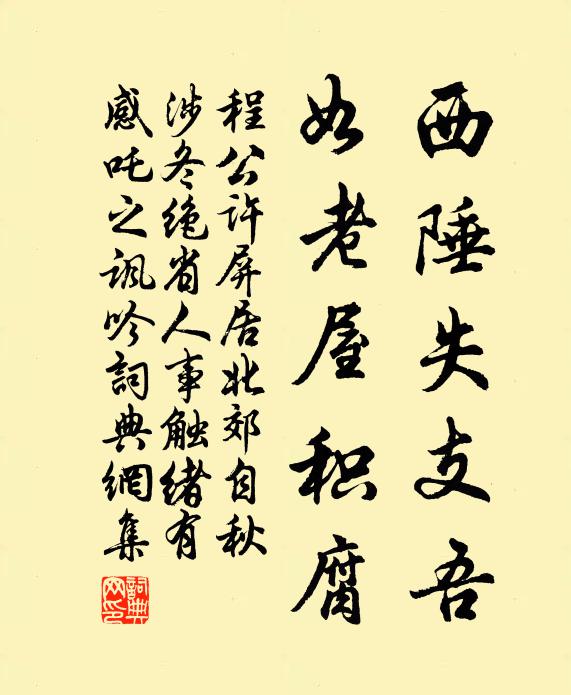 西陲失支吾
如老屋积腐
程公许屏居北郊自秋
涉冬绝省人事触绪有
感吒之讽吟詞典網集
詞典
网印